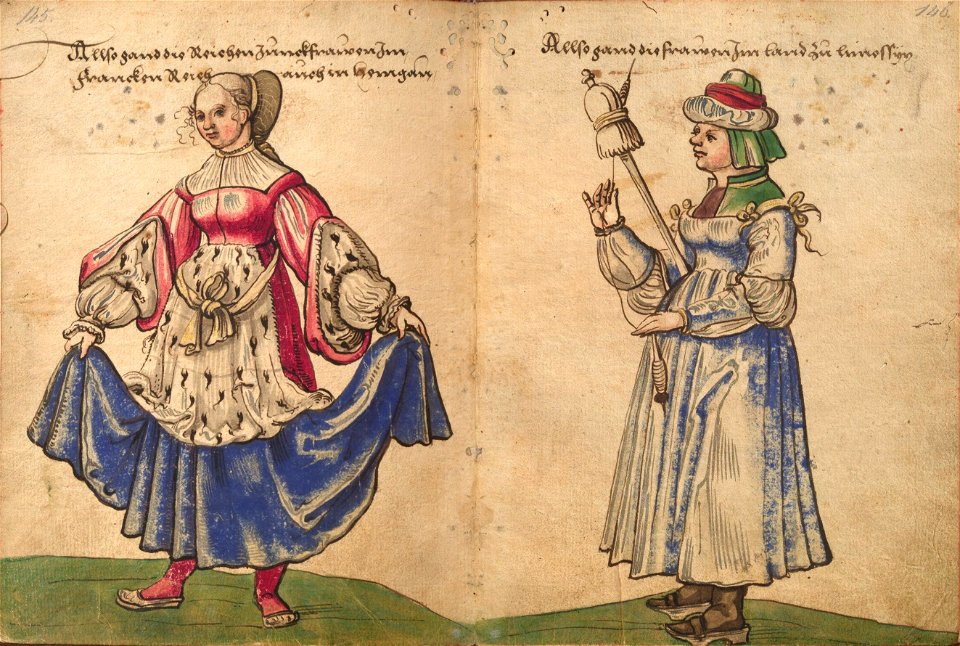 145.
Allso gand die Reichen Junckfrauen Im
Francken Reich auch in Hemgau
146.
Allso gand die frauwen Im land zu limossyn